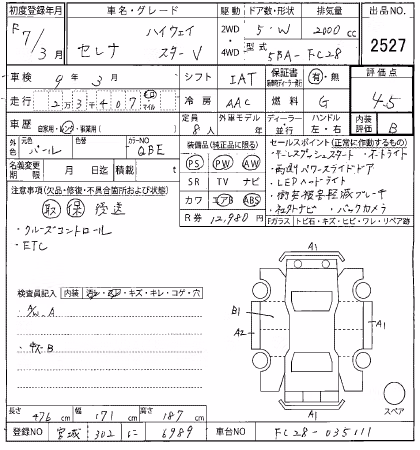 初度登録年月 車名・グレード 駆動 ドア数・形状 排気量 出品NO.
F 7/3月 セレナ ハイウェイスターV 2WD 4WD 5・W 2000 cc 2527
型式 5BA-FC28
車検 9年 3月 シフト IAT 保証書 有・無 評価点
走行 2 3 4 0 7 マイル 冷房 AAC 燃料 G 4.5
車歴 自家用・レンタ・事業用 定員 8人 外車モデル 年 ディーラー 並行 ハンドル 左・右 内装評価 B
色 元色 パール 色替 カラーNO QBE
装備品(純正品に限る)
セールスポイント(正常に作動するもの)
名義変更期限 月 日迄 積載量 t
PS PW AW
SR TV ナビ
カワ エアB ABS
R券 12,980円
・キーレスプッシュスタート ・オートライト
・両側パワースライドドア
・LEDヘッドライト
・衝突被害軽減ブレーキ
・社外ナビ ・バックカメラ
Fガラス トビ石・キズ・ヒビ・ワレ・リペア跡
注意事項(欠品・修復・不具合箇所および状態)
取 保 後送
・クルーズコントロール
・ETC
検査員記入 内装 キズ・キレ・コゲ・穴
A/W A
中天B
A1
B1
A2
A1
A1
スペア
長さ 476 cm 幅 171 cm 高さ 187 cm
登録NO 宮城 302 に 6989 車台NO FC28-035111